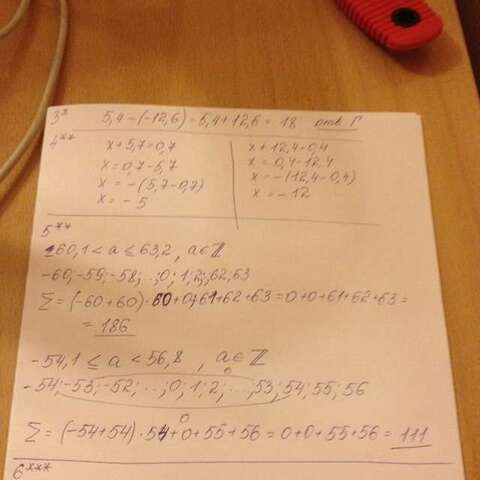 3* 5,4-(-12,6)=5,4+12,6=18 отв. Г
4**
x+5,7=0,7
x=0,7-5,7
x=-(5,7-0,7)
x=-5
x+12,4=0,4
x=0,4-12,4
x=-(12,4-0,4)
x=-12
5**
-60,1<a≤63,2, a∈ℤ
-60;-59;-58;...;0;1;2;...62,63
Σ=(-60+60)·60+0+61+62+63=0+0+61+62+63=
=186
-54,1≤a<56,8, a∈ℤ
0
-54;-53;-52;...;0;1;2;...;53;54;55;56
0
Σ=(-54+54)·54+0+55+56=0+0+55+56=111
6***